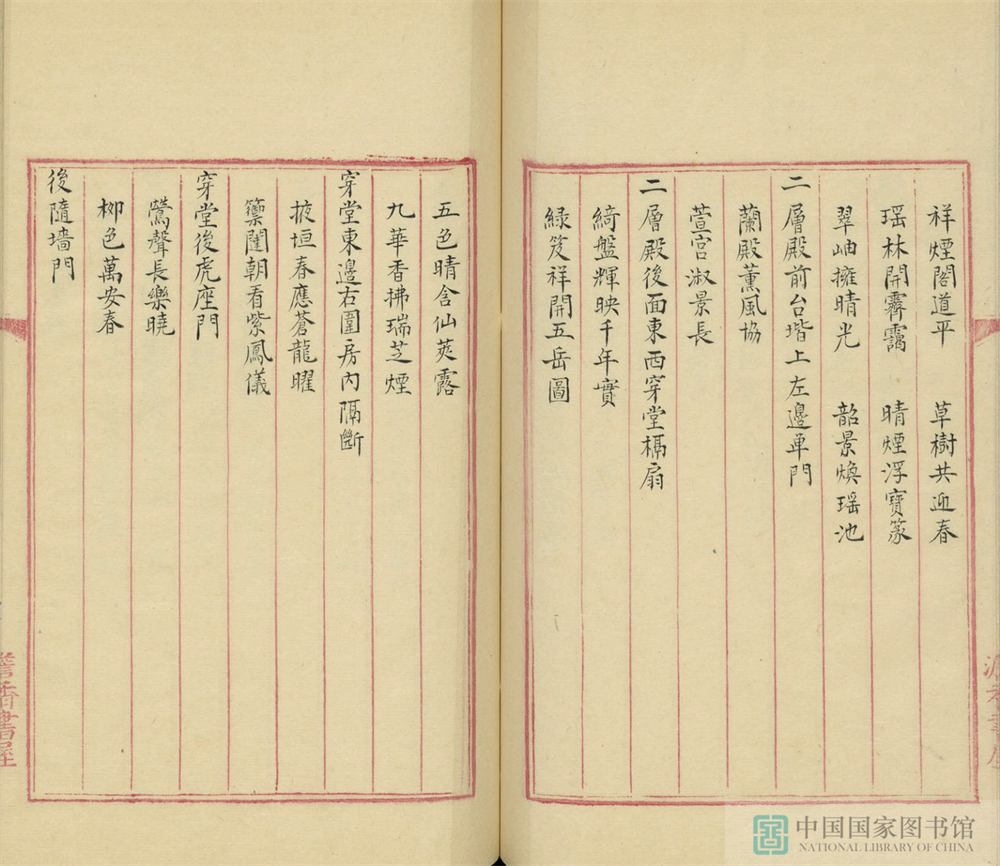 祥煙閣道平　草樹共迎春
瑶林開霽靄　晴煙浮寶篆
翠岫擁晴光　韶景煥瑶池
二層殿前台堦上左邊単門
蘭殿薰風協
萱宫淑景長
二層殿後面東西穿堂槅扇
綺盤輝映千年實
緑笈祥開五岳圖
五色晴含仙莢露
九華香拂瑞芝煙
穿堂東邊右圍房内隔斷
掖垣春應蒼龍曜
籞闈朝看紫鳳儀
穿堂後虎座門
鶯聲長樂曉
柳色萬安春
後隨墻門
書屋
中国国家图书馆
NATIONAL LIBRARY OF CHINA